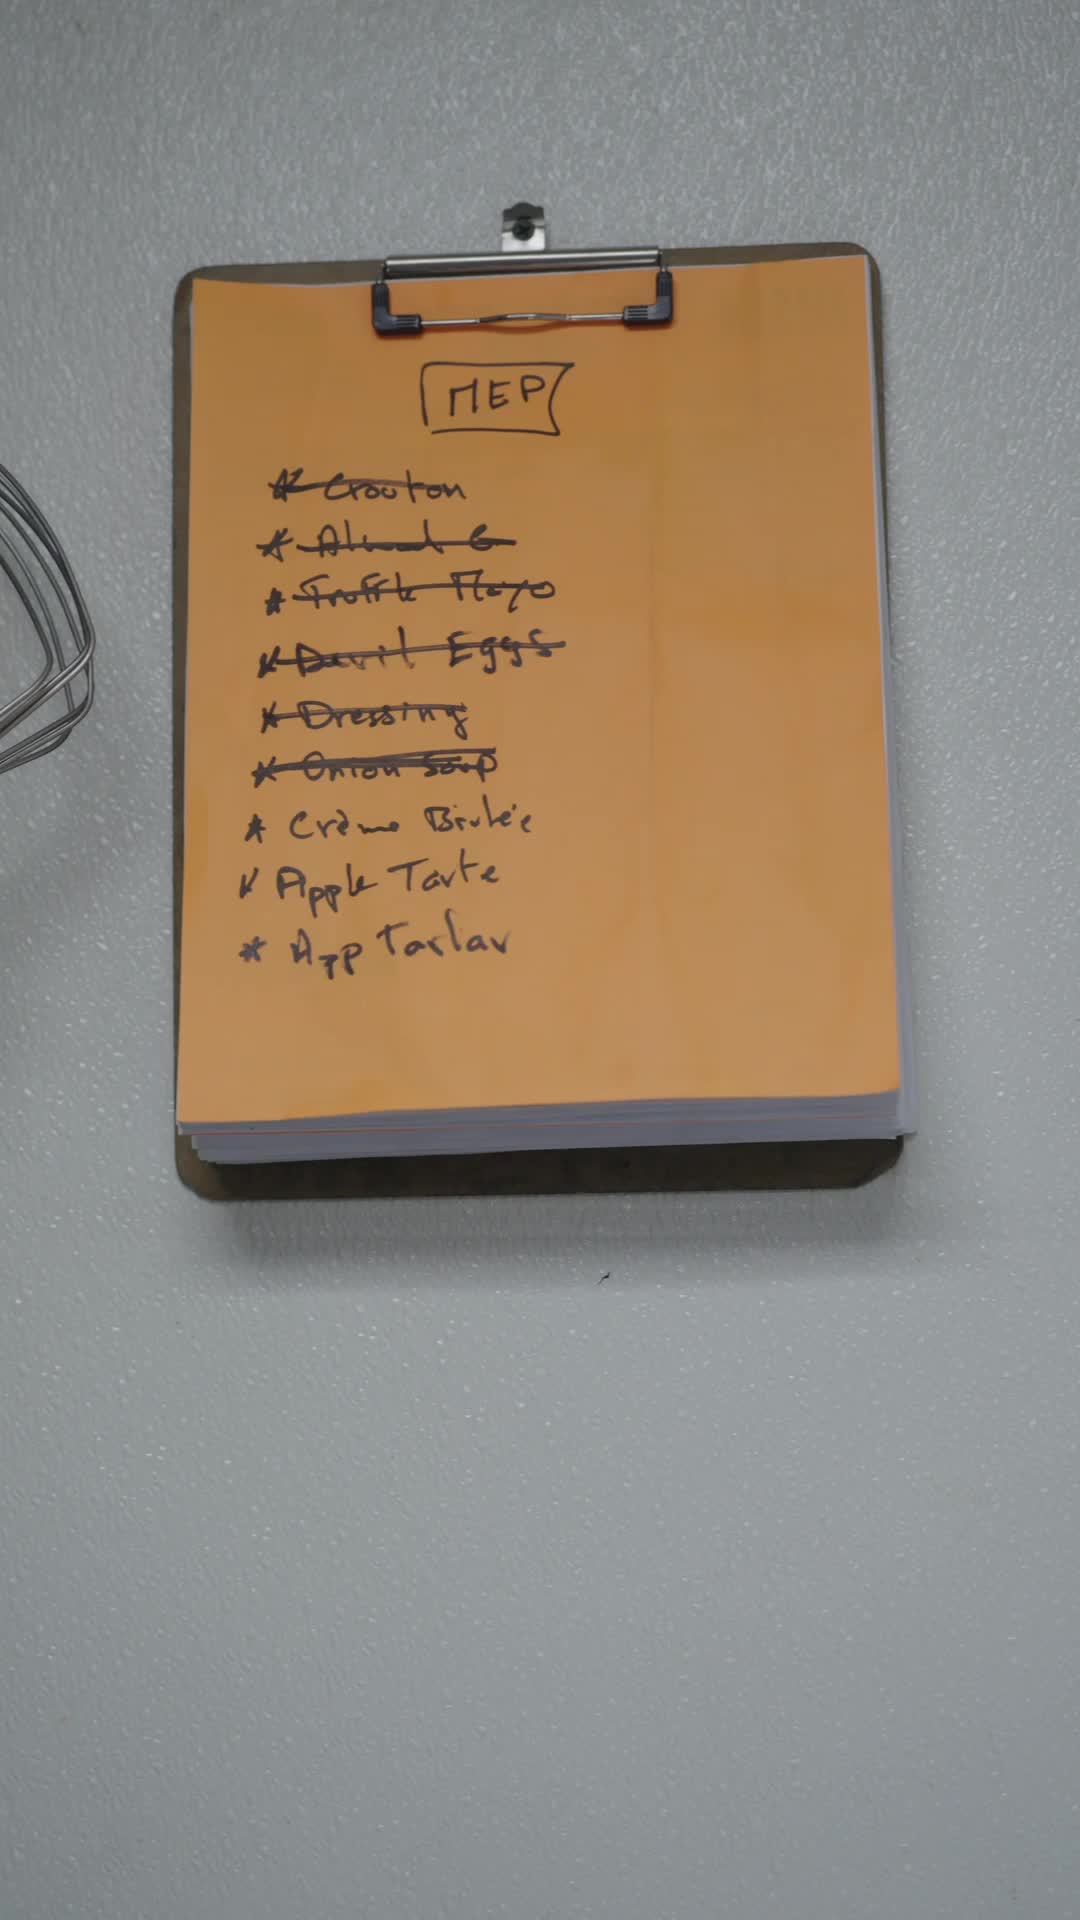 MEP
* Crouton
* Almond G
* Truffle Mayo
* Devil Eggs
* Dressing
* Onion Soup
* Crème Brulée
* Apple Tarte
* App Tartar